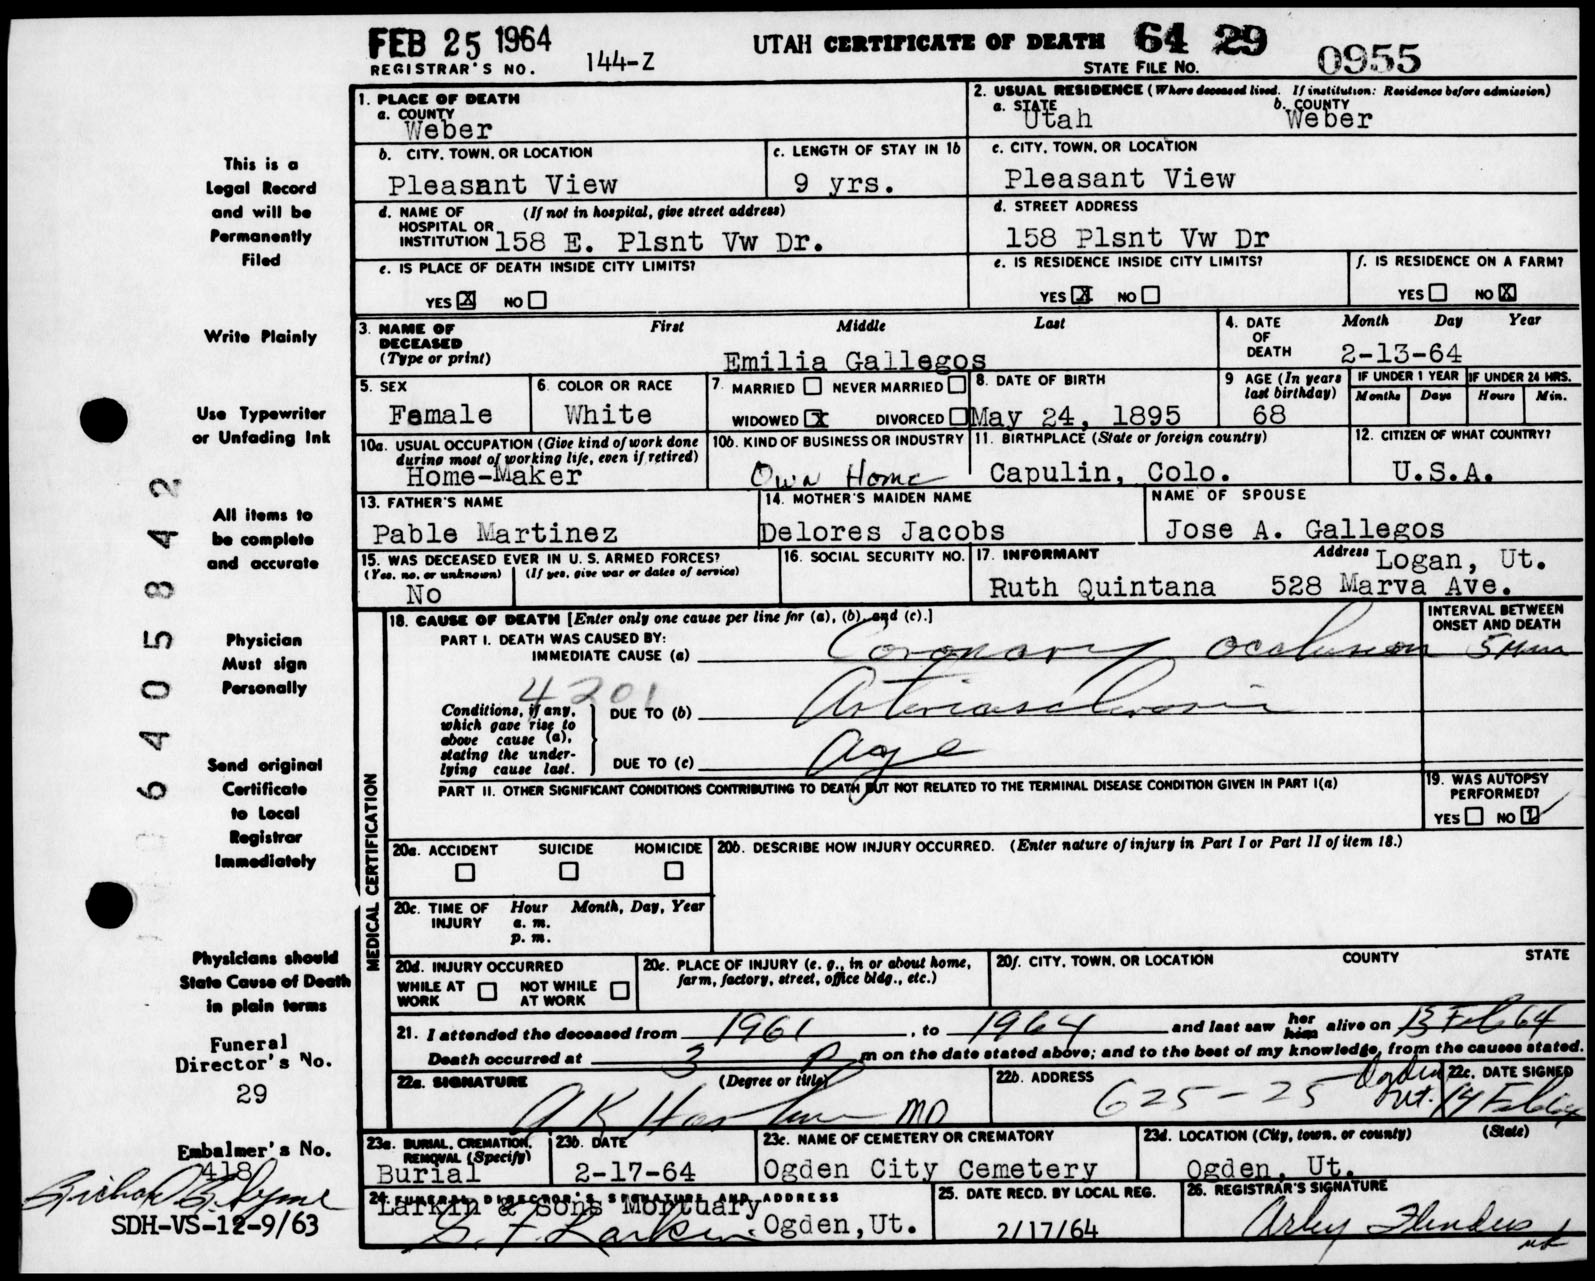 FEB 25 1964
REGISTRAR'S NO. 144-Z
UTAH CERTIFICATE OF DEATH 64 29
STATE FILE No. 0955
This is a
Legal Record
and will be
Permanently
Filed
Write Plainly
Use Typewriter
or Unfading Ink
All items to
be complete
and accurate
Physician
Must sign
Personally
Send original
Certificate
to Local
Registrar
Immediately
Physicians should
State Cause of Death
in plain terms
Funeral
Director's No.
29
Embalmer's No.
418
SDH-VS-12-9/63
06405842
1. PLACE OF DEATH
a. COUNTY
Weber
2. USUAL RESIDENCE (Where deceased lived. If institution: Residence before admission)
a. STATE b. COUNTY
Utah Weber
b. CITY, TOWN, OR LOCATION
Pleasant View
c. LENGTH OF STAY IN 1b
9 yrs.
c. CITY, TOWN, OR LOCATION
Pleasant View
d. NAME OF (If not in hospital, give street address)
HOSPITAL OR
INSTITUTION 158 E. Plsnt Vw Dr.
d. STREET ADDRESS
158 Plsnt Vw Dr
e. IS PLACE OF DEATH INSIDE CITY LIMITS?
YES X NO
e. IS RESIDENCE INSIDE CITY LIMITS?
YES X NO
f. IS RESIDENCE ON A FARM?
YES NO X
3. NAME OF First Middle Last
DECEASED
(Type or print) Emilia Gallegos
4. DATE Month Day Year
OF
DEATH 2-13-64
5. SEX
Female
6. COLOR OR RACE
White
7. MARRIED NEVER MARRIED
WIDOWED X DIVORCED
8. DATE OF BIRTH
May 24, 1895
9 AGE (In years
last birthday)
68
IF UNDER 1 YEAR IF UNDER 24 HRS.
Months Days Hours Min.
10a. USUAL OCCUPATION (Give kind of work done
during most of working life, even if retired)
Home-Maker
10b. KIND OF BUSINESS OR INDUSTRY
Own Home
11. BIRTHPLACE (State or foreign country)
Capulin, Colo.
12. CITIZEN OF WHAT COUNTRY?
U.S.A.
13. FATHER'S NAME
Pable Martinez
14. MOTHER'S MAIDEN NAME
Delores Jacobs
NAME OF SPOUSE
Jose A. Gallegos
15. WAS DECEASED EVER IN U. S. ARMED FORCES?
(Yes, no, or unknown) (If yes, give war or dates of service)
No
16. SOCIAL SECURITY NO.
17. INFORMANT Address Logan, Ut.
Ruth Quintana 528 Marva Ave.
MEDICAL CERTIFICATION
18. CAUSE OF DEATH [Enter only one cause per line for (a), (b), and (c).]
INTERVAL BETWEEN
ONSET AND DEATH
PART I. DEATH WAS CAUSED BY:
IMMEDIATE CAUSE (a) Coronary occlusion 5 Min
4201
Conditions, if any,
which gave rise to
above cause (a),
stating the under-
lying cause last.
DUE TO (b) Arteriosclerosis
DUE TO (c) Age
PART II. OTHER SIGNIFICANT CONDITIONS CONTRIBUTING TO DEATH BUT NOT RELATED TO THE TERMINAL DISEASE CONDITION GIVEN IN PART I(a)
19. WAS AUTOPSY
PERFORMED?
YES NO
20a. ACCIDENT SUICIDE HOMICIDE
20b. DESCRIBE HOW INJURY OCCURRED. (Enter nature of injury in Part I or Part II of item 18.)
20c. TIME OF Hour Month, Day, Year
INJURY a. m.
p. m.
20d. INJURY OCCURRED
WHILE AT NOT WHILE
WORK AT WORK
20e. PLACE OF INJURY (e. g., in or about home,
farm, factory, street, office bldg., etc.)
20f. CITY, TOWN, OR LOCATION COUNTY STATE
21. I attended the deceased from 1961, to 1964 and last saw her him alive on 13 Feb 64
Death occurred at 3 P m on the date stated above; and to the best of my knowledge, from the causes stated.
22a. SIGNATURE (Degree or title)
MD
22b. ADDRESS
625-25 Ogden Ut.
22c. DATE SIGNED
14 Feb 64
23a. BURIAL, CREMATION,
REMOVAL (Specify)
Burial
23b. DATE
2-17-64
23c. NAME OF CEMETERY OR CREMATORY
Ogden City Cemetery
23d. LOCATION (City, town, or county) (State)
Ogden, Ut.
24. FUNERAL DIRECTOR'S SIGNATURE AND ADDRESS
Larkin & Sons Mortuary
G. F. Larkin Ogden, Ut.
25. DATE RECD. BY LOCAL REG.
2/17/64
26. REGISTRAR'S SIGNATURE
Arley Flinders